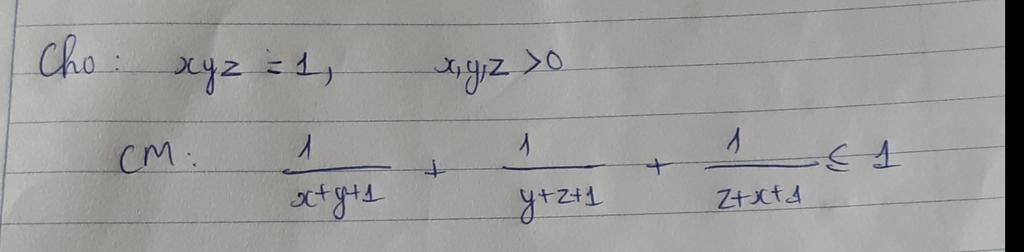 Cho: xyz = 1, x,y,z >0
CM: 1/(x+y+1) + 1/(y+z+1) + 1/(z+x+1) ≤ 1